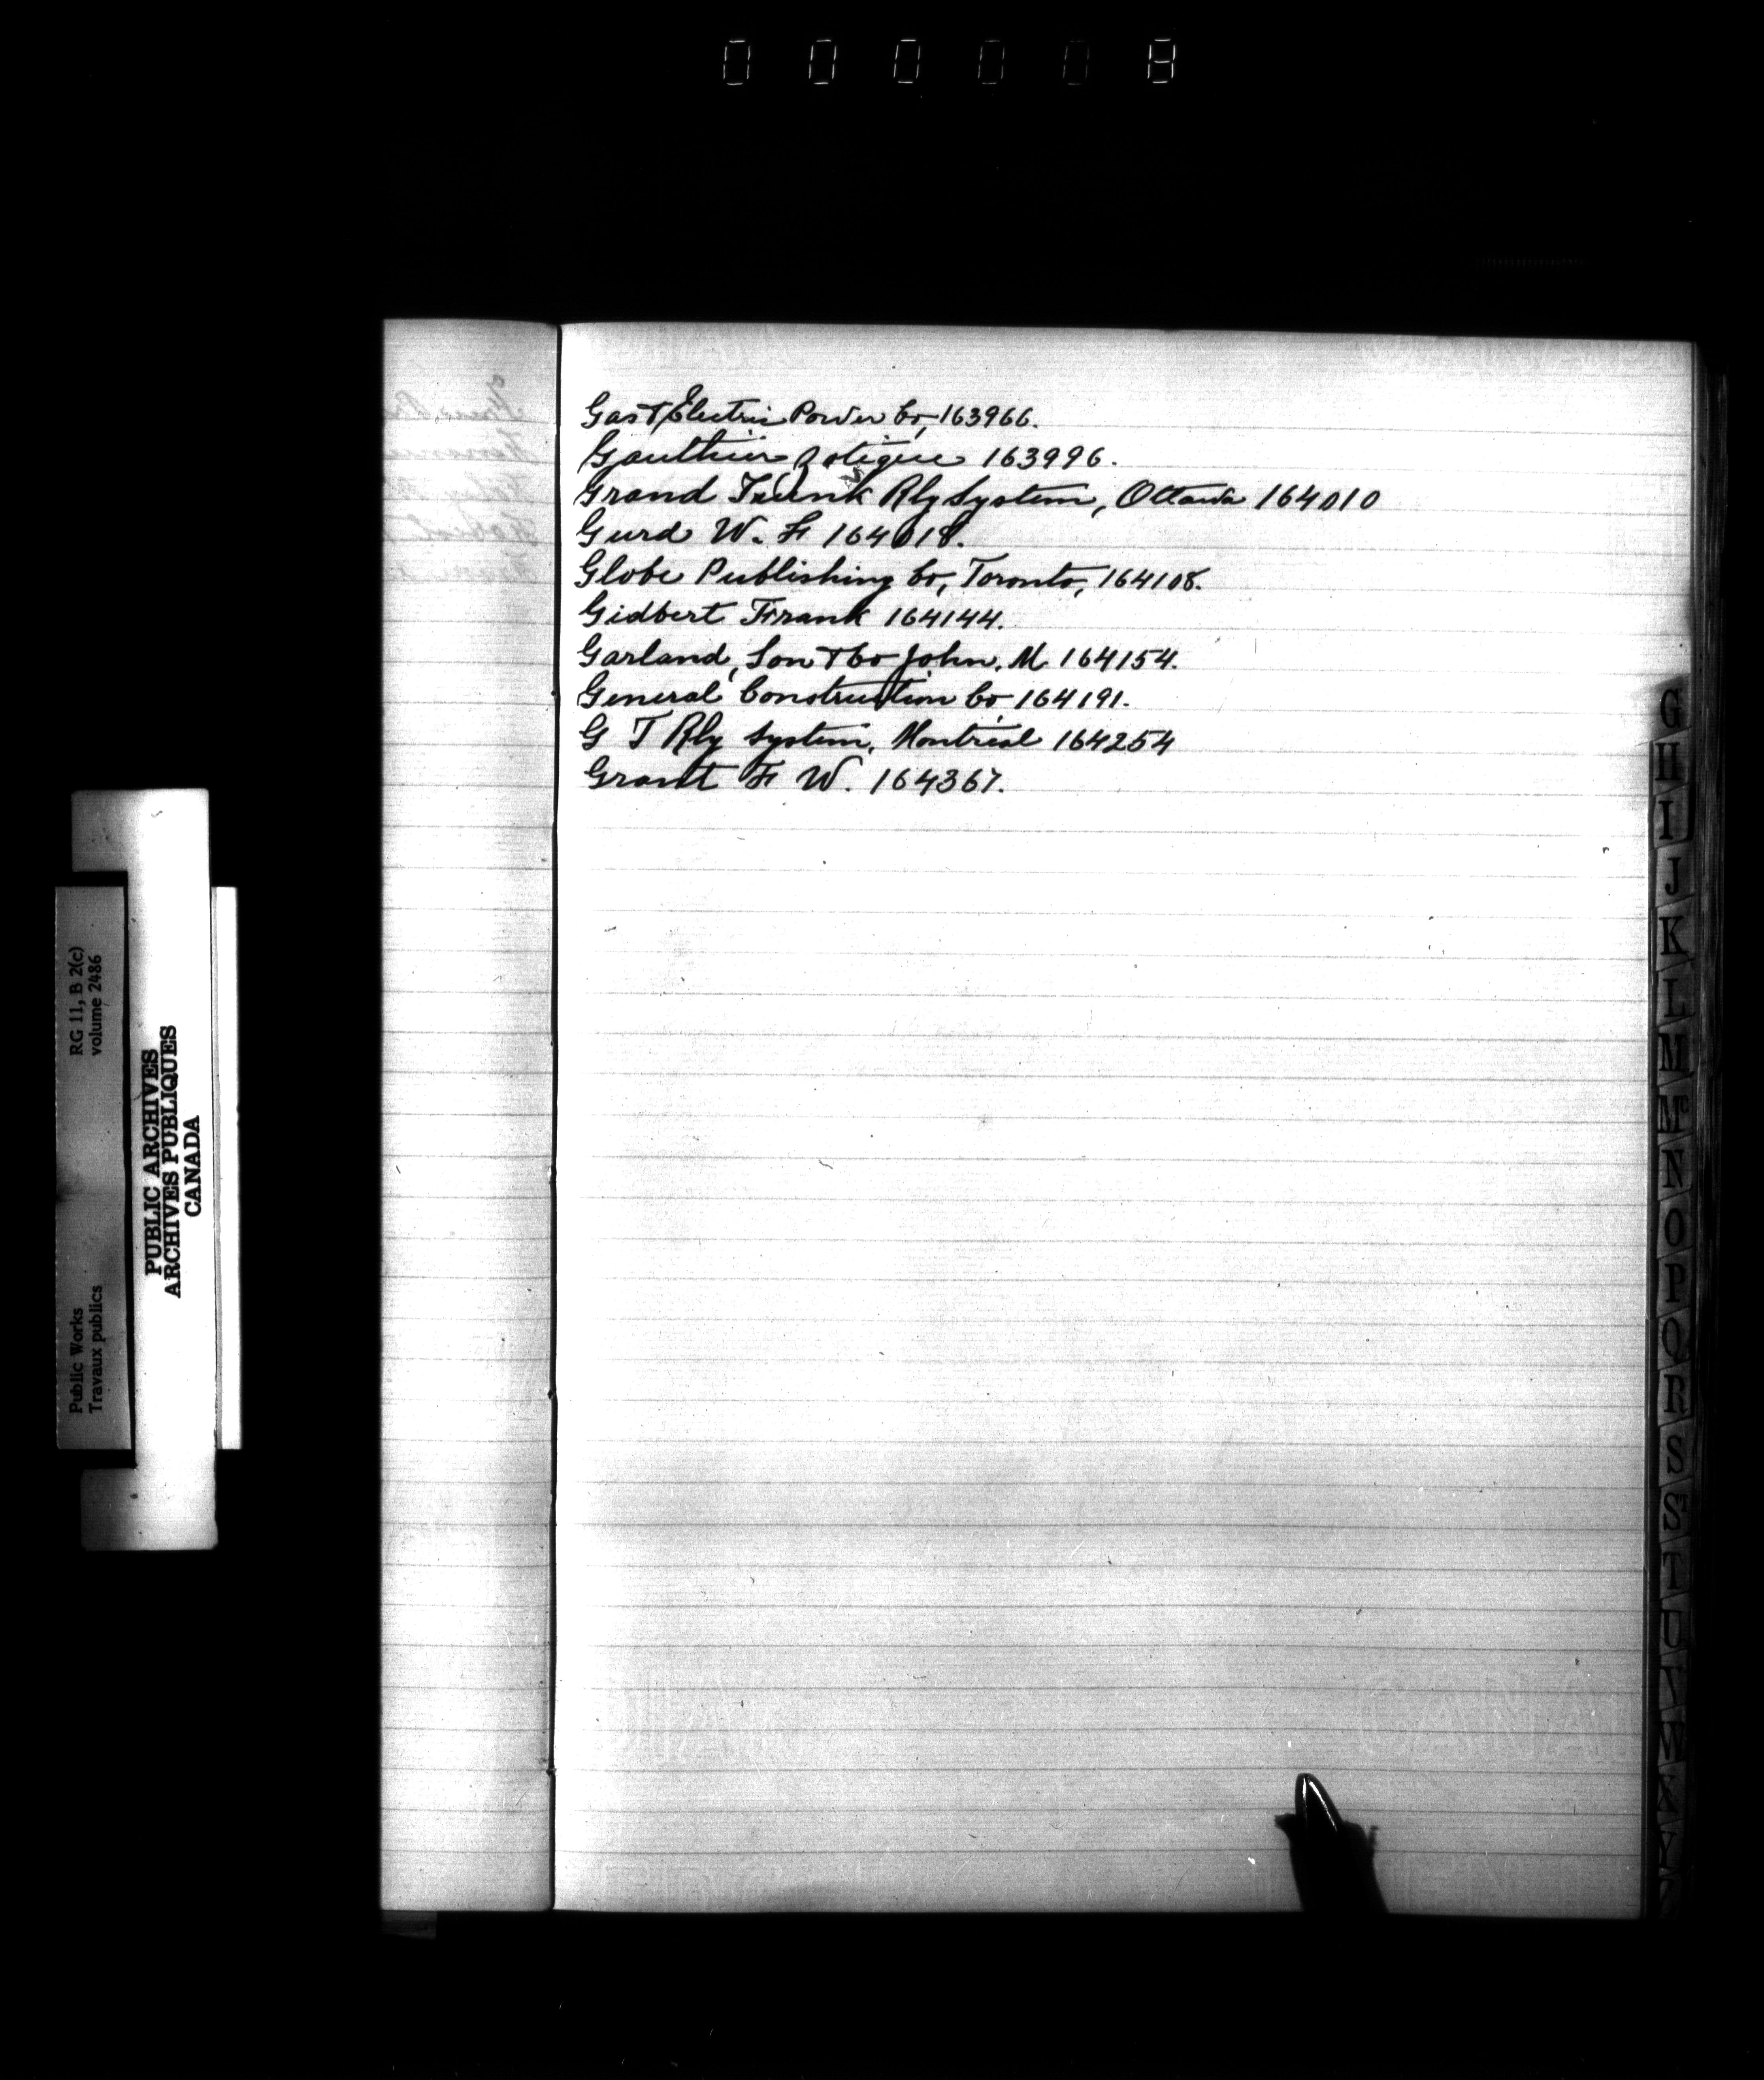 000008
Gas & Electric Power Co, 163966.
Gauthier Zotique 163996.
Grand Trunk Rly System, Ottawa 164010
Gurd W. F 164018.
Globe Publishing Co, Toronto, 164108.
Gidbert Frank 164144.
Garland, Son & Co John. M 164154.
General Construction Co, 164191.
G T Rly System, Montreal 164254
Grant F W. 164367.
G
H
I
J
K
L
M
Mc
N
O
P
Q
R
S
S
T
U
V
W
X
Y
RG 11, B 2(c)
volume 2486
Public Works
Travaux publics
PUBLIC ARCHIVES
ARCHIVES PUBLIQUES
CANADA